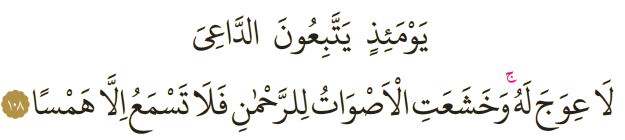 يَوْمَئِذٍ يَتَّبِعُونَ الدَّاعِىَ
لَا عِوَجَ لَهُ ۚ وَخَشَعَتِ الْاَصْوَاتُ لِلرَّحْمٰنِ فَلَا تَسْمَعُ اِلَّا هَمْسًا ﴿١٠٨﴾